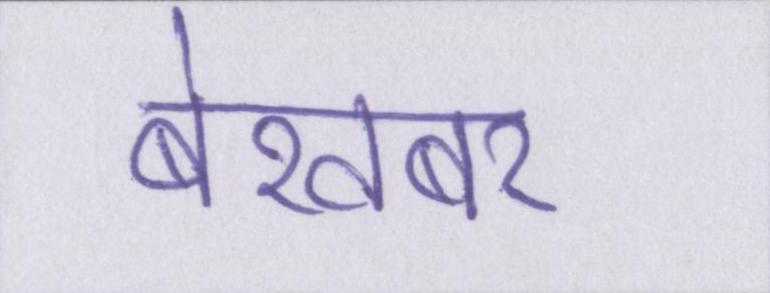 बेखबर